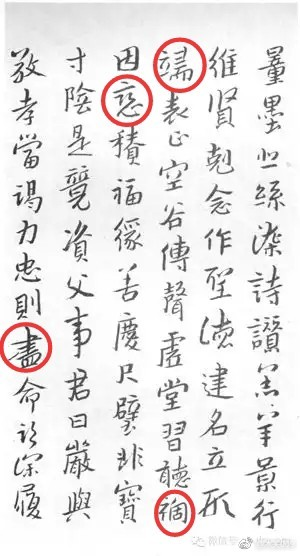 量墨悲絲染詩讚羔羊景行
維賢剋念作聖德建名立形
端表正空谷傳聲虛堂習聽禍
因惡積福緣善慶尺璧非寶
寸陰是競資父事君曰嚴與
敬孝當竭力忠則盡命臨深履
微信号: